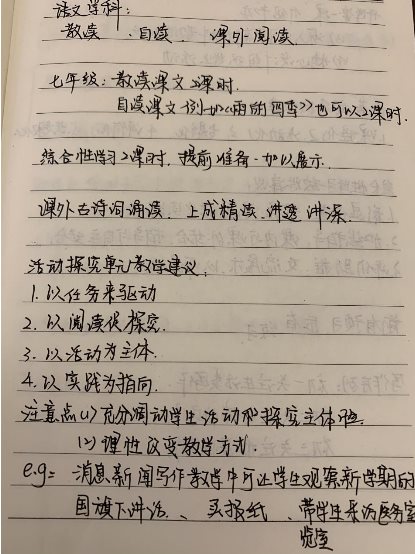 语文学科：
教读、自读、课外阅读.
七年级：教读课文2课时.
自读课文例如《雨的四季》也可以2课时.
综合性学习2课时，提前准备，加以展示.
课外古诗词诵读，上成精读、讲透讲深.
活动探究单元教学建议.
1. 以任务来驱动
2. 以阅读促探究.
3. 以活动为主体.
4. 以实践为指向.
注意点(1)充分调动学生活动和探究主体
(2)理性改变教学方式.
e.g= 消息新闻写作教学中可让学生观察新学期的
国旗下讲话、买报纸、带学生采访医务室
览室